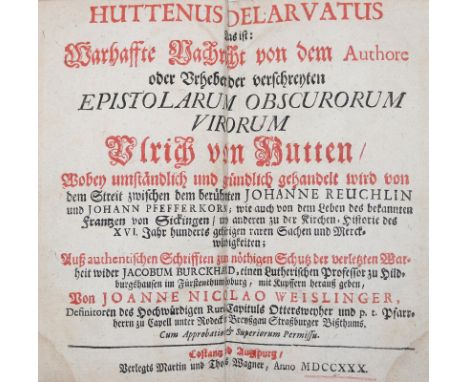 HUTTENUS DELARVATUS
das ist:
Warhaffte Nachricht von dem Authore
oder Urheber der verschreyten
EPISTOLARUM OBSCURORUM
VIRORUM
Ulrich von Hutten /
Wobey umständlich und gründlich gehandelt wird von
dem Streit zwischen dem berühmten JOHANNE REUCHLIN
und JOHANN PFEFFERKORN; wie auch von dem Leben des bekannten
Frantzen von Sickingen / und anderen zu der Kirchen-Historie des
XVI. Jahr hunderts gehörigen raren Sachen und Merck-
würdigkeiten;
Auß authentischen Schrifften zu nöthigen Schutz der verletzten War-
heit wider JACOBUM BURCKHARD, einen Lutherischen Professor zu Hild-
burgshausen im Fürstenthum, mit Kupffern herauß geben,
Von JOANNE NICOLAO WEISLINGER,
Definitoren des Hochwürdigen Rural Capituls Ottersweyher und p. t. Pfarr-
herrn zu Capell unter Rodeck Breyßgau Straßburger Bißthums.
Cum Approbatione & Superiorum Permissu.
Costantz und Augspurg /
Verlegts Martin und Thomas Wagner, Anno MDCCXXX.